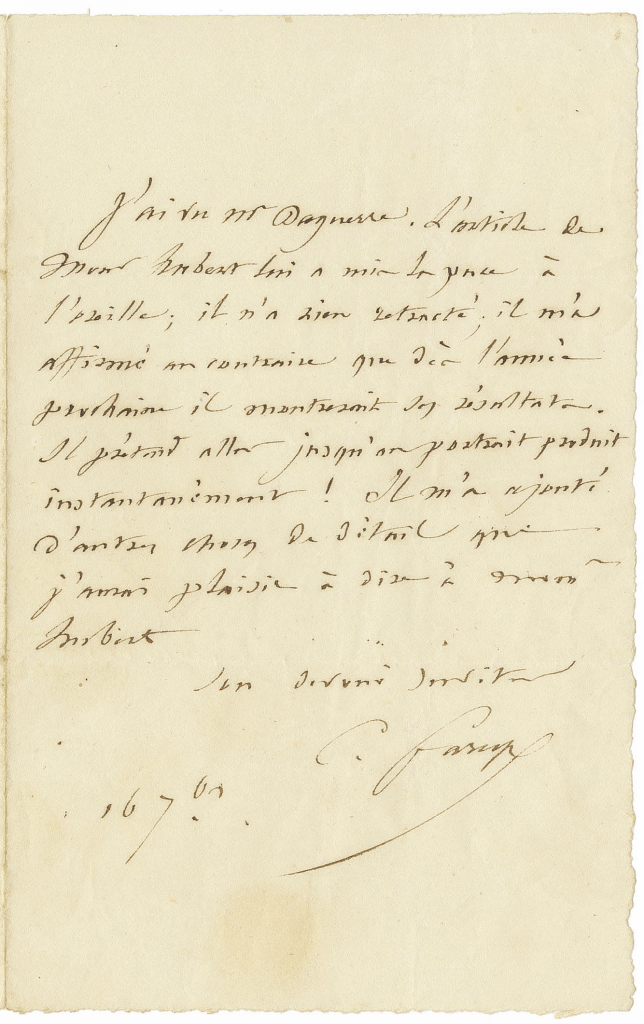 J'ai vu mr Daguerre. L'article de
Monr hubert lui a mis la puce à
l'oreille; il n'a rien retracté; il m'a
affirmé au contraire que dès l'année
prochaine il montrerait ses résultats.
Il prétend aller jusqu'au portrait produit
instantanément ! Il m'a ajouté
d'autres choses de détail que
j'aurai plaisir à dire à monr
hubert
Son dévoué serviteur
C.
16 7bre